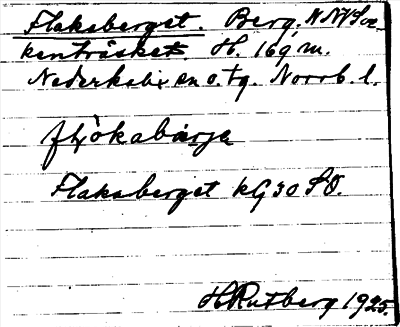 Flaksberget. Berg. N NV Soc-
kenträsket. H. 169 m.
Nederkalix sn o. tg. Norrb. l.
Flaksberget kG 30 SO.
H. Rutberg 1925.